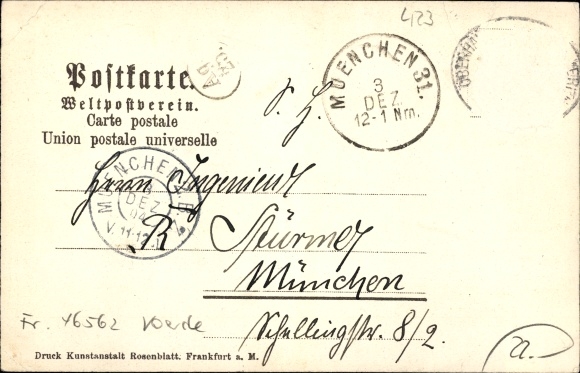 423
Postkarte.
Weltpostverein.
Carte postale
Union postale universelle
MUENCHEN 31.
3
DEZ.
12-1 Nm.
S. H.
Herrn Ingenieur
R Stürmer
München
Schellingstr. 8/2.
MUENCHEN
DEZ
04
V. 11-12
Fr. 46562
Druck Kunstanstalt Rosenblatt. Frankfurt a. M.